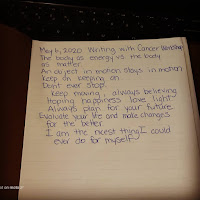 May 6, 2020 Writing with Cancer Workshop
The body as energy vs the body
as matter.
An object in motion stays in motion
Keep on keeping on.
Dont ever stop!
Keep moving, always believing
Hoping happiness love light
Always plan for your future
Evaluate your life and make changes
for the better.
I am the nicest thing I could
ever do for myself